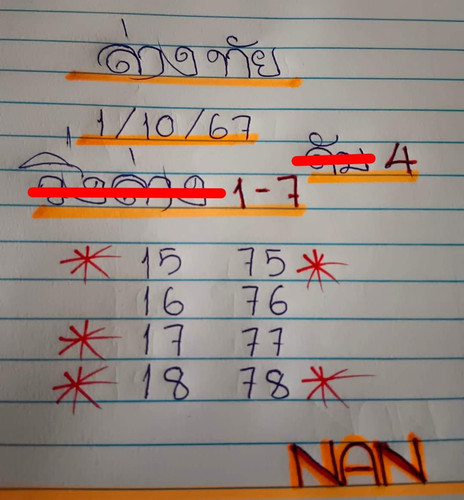 ล่าง ทัย
1/10/67
4
1-7
15 75
16 76
17 77
18 78
NAN